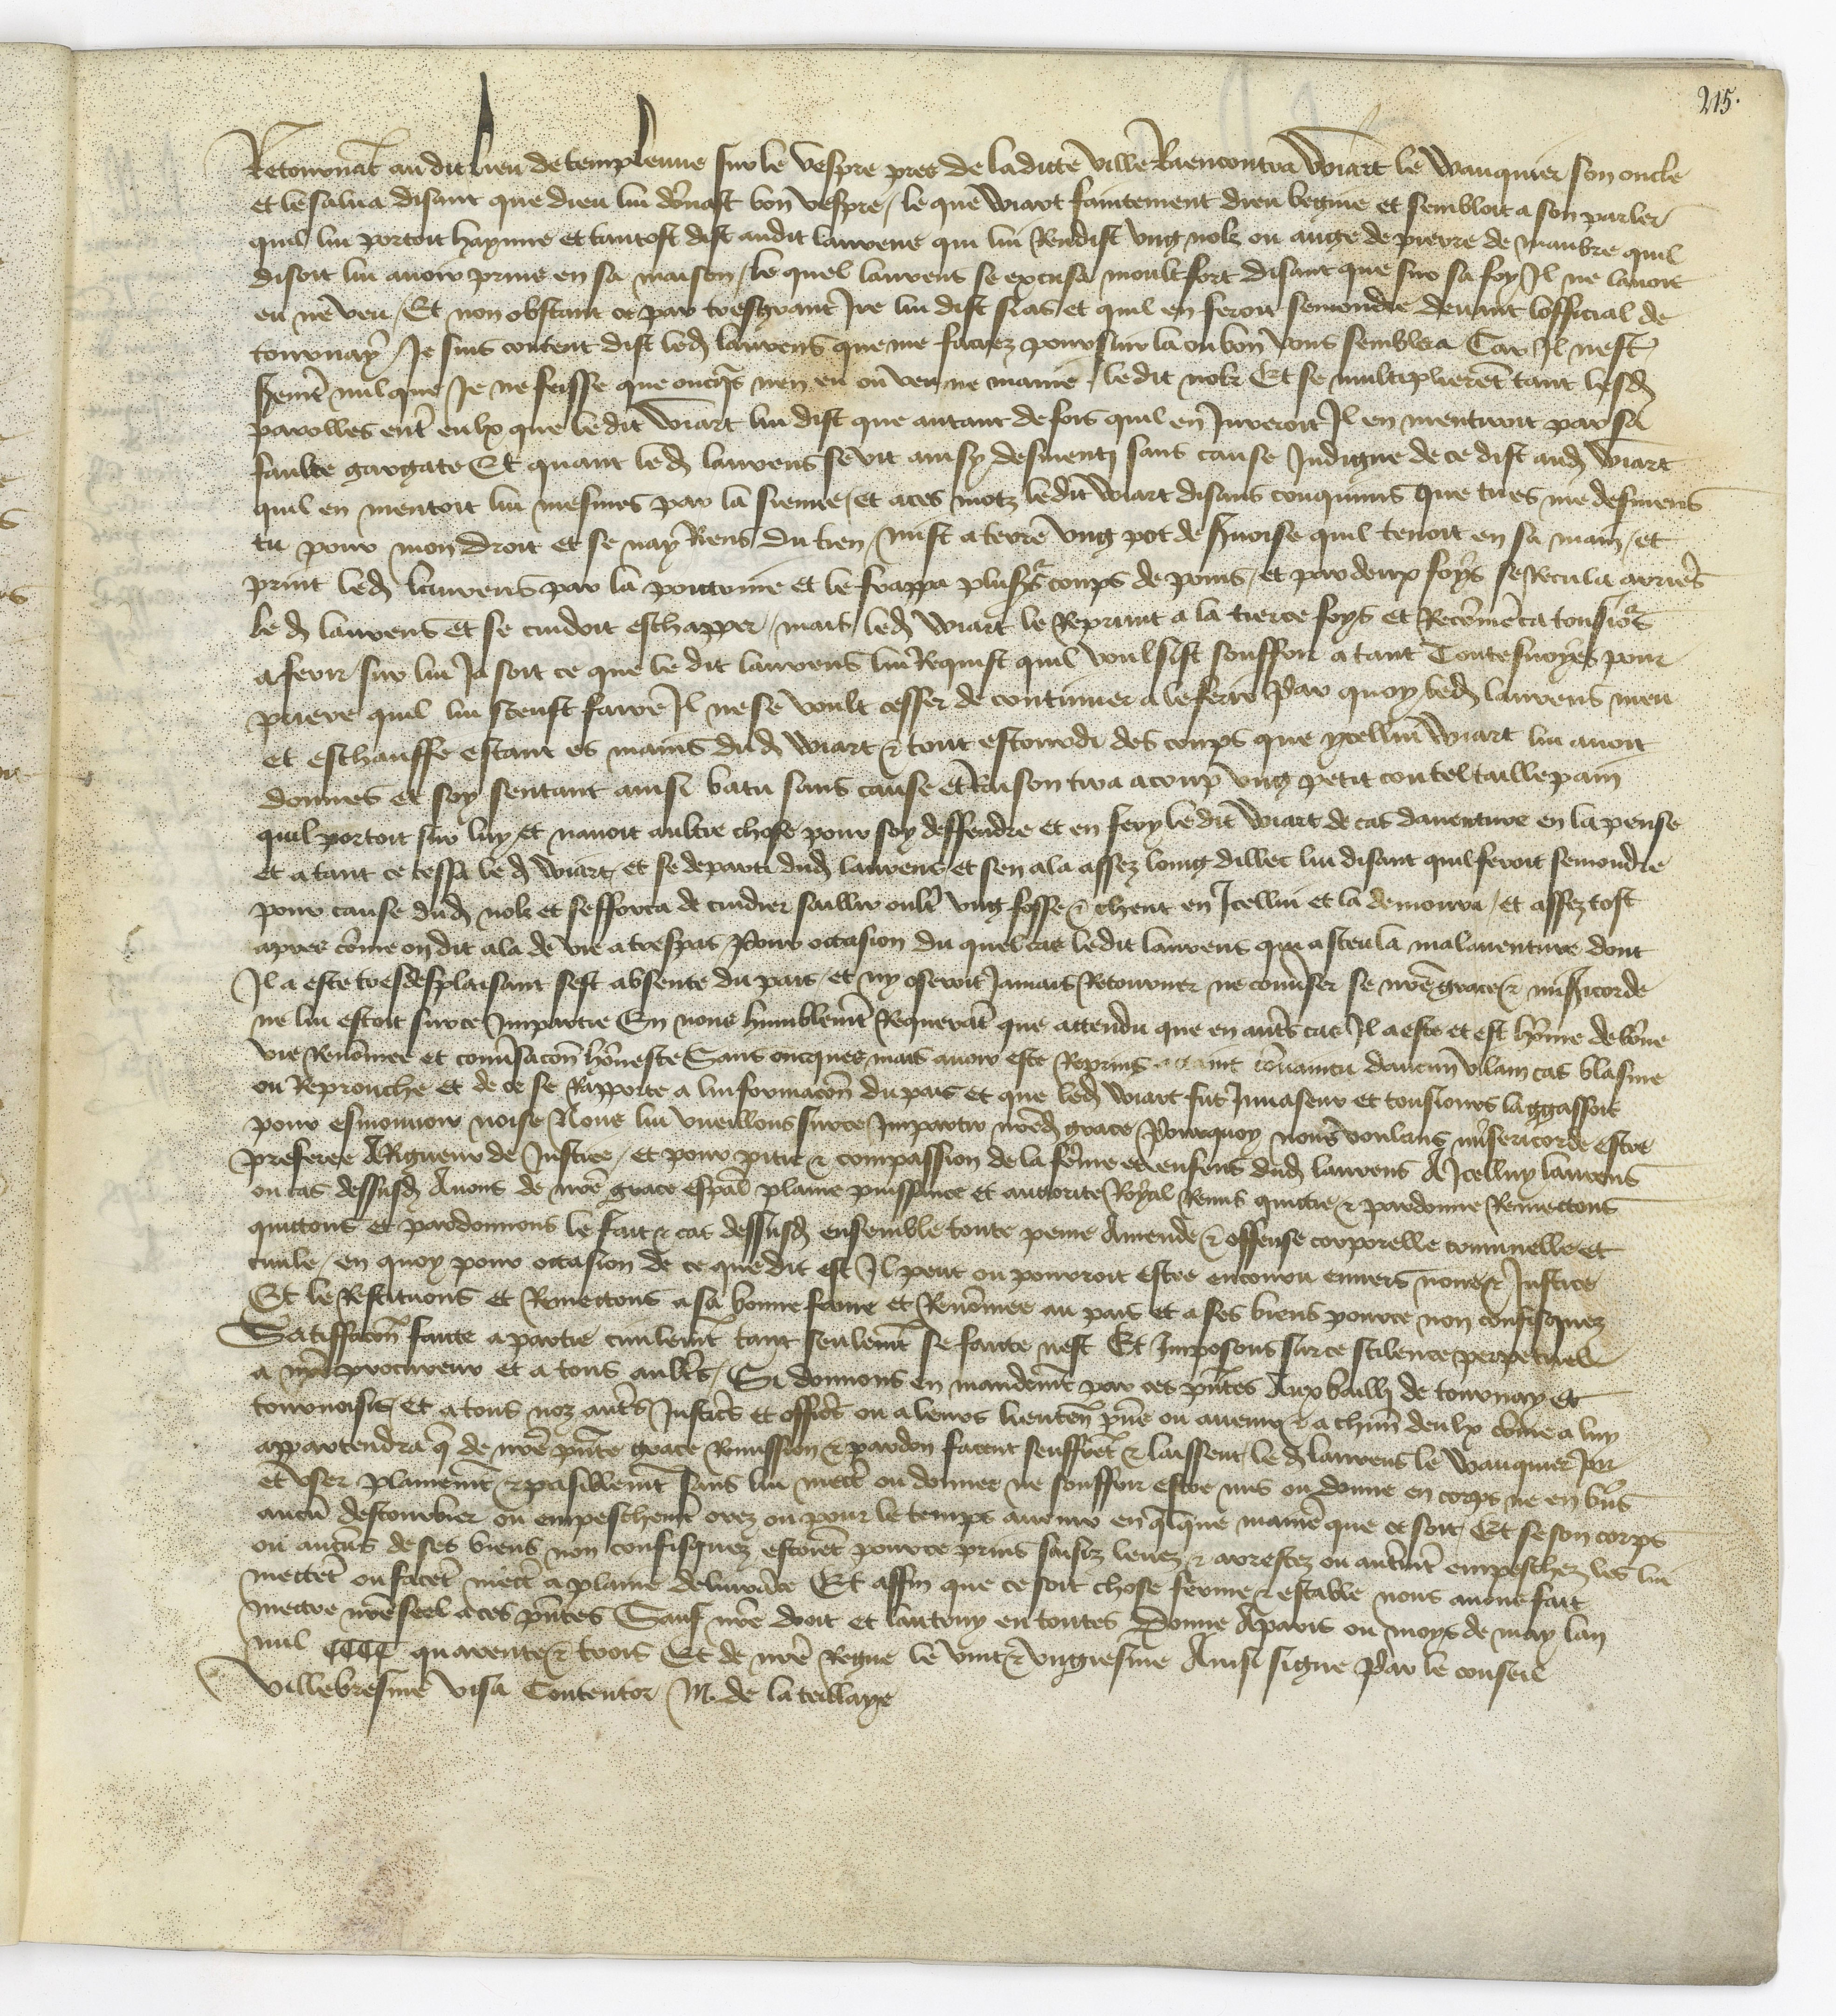 215.
Retournãt au dit lieu de templeuue sur le vespre pres de ladicte ville Riencontra Wiart le Wauquier son oncle
et le salua disant que dieu lui dõnast bon vespre / le quel Wiart faintement dieu vegnie et sembloit a son parler
quil lui portoit hayнne et tantost dist audit laurens qui lui Rendist ung nok ou auge de pierre de maubre quil
disoit lui auoir prins en sa maison / le quel laurens se excusa moult fort disant que sur sa foy Il ne lauoit
eu ne veu / Et non obstant ce par tresgrant Ire lui dist si as et quil en feroit semondre deuant lofficial de
tournay / Je suis content dist led laurens que me facez poursuir la ou bon vous semblera Car Il nest
sermẽt nul que Je ne feisse que oncq̃s nen eu ou veu ne manie / le dit nok Et se multiplierẽt tant lesd
parolles entr̃ eulx que ledit Wiart lui dist que autant de fois quil en Jureroit Il en mentiroit par sa
faulce gargate Et quant led laurens se vit ainsy desmenti sans cause Indigne de ce dist aud Wiart
quil en mentoit lui mesmes par la sienne / et a ces motz ledit Wiart disans couquinus que tu es me desmens
tu pour mon droit et se nay Riens du tien / mist a terre ung pot de sernoise quil tenoit en sa main / et
print led laurens par la poitrine et le frappa plus̃rs coups de poins / et par deux foys se Recula arriẽs
le d laurens et se cuidoit eschapper / mais led Wiart le Reprint a la tierce foys et Recõmẽca tousiõrs
a ferir sur lui Ja soit ce que le dit laurens lui Requist quil voulsist souffrir a tant Toutesuoyes pour
priere quil lui sceust faire Il ne se voult cesser de continuer a le ferir Par quoy led laurens meu
et eschauffe estant es mains dud Wiart & tout estourdi des coups que ycellui Wiart lui auoit
donnes et soy sentant ainsi batu sans cause et Raison tira a coup ung petit coutel taillepain
quil portoit sur luy et nauoit aultre chose pour soy deffendre et en fery le dit Wiart de cas dauenture en la pense
et a tant ce cessa le d Wiart et se departi dud laurens et sen ala assez loing dillec lui disant quil feroit semondre
pour cause dud nok et sefforca de cuidier saillir oultr̃ ung fosse & cheut en Icellui et la demoura / et assez tost
apres cõme on dit ala de vie a trespas Pour occasion du quel cas ledit laurens qui a sceu la malauenture dont
Il a este tresdesplaisant sest absente du pais / et ny oseroit Jamais Retourner ne conũser se nrẽ grace & miscr̃icorde
ne lui estoit sur ce Impartie En nous humblemẽt Requerãt que attendu que en autrẽs cas Il a este et est hõme de bõne
vie Renõmee et conũsacoñ hõneste Sans oncques mais auoir este Reprins attaint cõuaincu daucun vilain cas blasme
ou Reprouche et de ce se Rapporte a lui formacoñ du pais et que led Wiart fut Inuaseur et tousiours laggassoit
pour esmouuoir noise Nous lui vueillons sur ce Impartir nrẽd grace Pourquoy nous voulans miséricorde estre
preferee A Rigueur de Justice / et pour pitie & compassion de la fẽme et enfens dud laurens A Icelluy laurens
ou cas dessusd Auons de nrẽ grace esp̃al plaine puissance et auctorite Royal Remis quictie & pardonne Remectons
quictons et pardonnons le fait & cas dessusd ensemble toute peine Amende & offense corporelle criminelle et
ciuile / en quoy pour occasion de ce que dit est Il peut ou pourroit estre encouru enuers nous & Justice
Et le Restituons et Remectons a sa bonne fame et Renõmee au pais et a ses biens pource non confisquez
Satiffacoñ faicte a partie ciuilemt̃ tant seulemt̃ se faicte nest Et Imposons sur ce scilence perpetuel
a nrẽ procureur et a tous aultrẽs / Si donnons en mandemt̃ par ces pñtes Aux bailli de tournay et
tournesis / et a tous noz autrẽs Justicrs̃ et officrs̃ ou a leurs lieuteñ pñs ou auenir & a chũn deulx cõme a luy
appartendra q̃ de nrẽ pñte grace Remission & pardon facent seuffrẽt & laissent le d laurens le Wauquier Joir
et vser plainemt̃ & paisiblemt̃ sans lui mectr̃ ou donner ne souffrir estre mis ou donne en corps ne en biẽs
aucũ destourbier ou empeschemt̃ ores ou pour le temps auenir en q̃lque manire que ce soit / Et se son corps
ou aucũs de ses biens non confisquez estoiẽt pource prins saisiz leuez & arrestez ou autremt̃ empeschez les lui
mectẽt ou facẽt mectr̃ a plaine deliurãce Et affin que ce soit chose ferme & estable nous auons fait
mectre nrẽ seel a ces pñtes Sauf nrẽ droit et lautruy en toutes Donne A paris ou moys de may lan
mil CCCC quarente & trois Et de nrẽ Regne le vint & vngiesme Ainsi signe Par le conseil
Villebresme visa Contentor M. de la teillaye